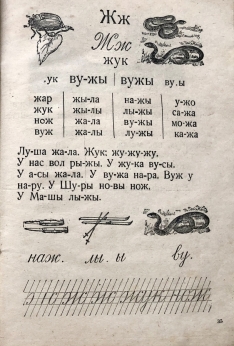 Жж
Жж
жук
.ук ву-жы вужы ву.ы
жар жы-ла на-жы у-жо
жук жы-лы лы-жы са-жа
нож жа-ла ву-жы мо-жа
вуж жа-лы лу-жы ка-жа
Лу-ша жа-ла. Жук: жу-жу-жу.
У нас вол ры-жы. У жу-ка ву-сы.
У а-сы жа-ла. У ву-жа на-ра. Вуж у
на-ру. У Шу-ры но-вы нож.
У Ма-шы лы-жы.
наж. лы. ы ву.
жук нож
35